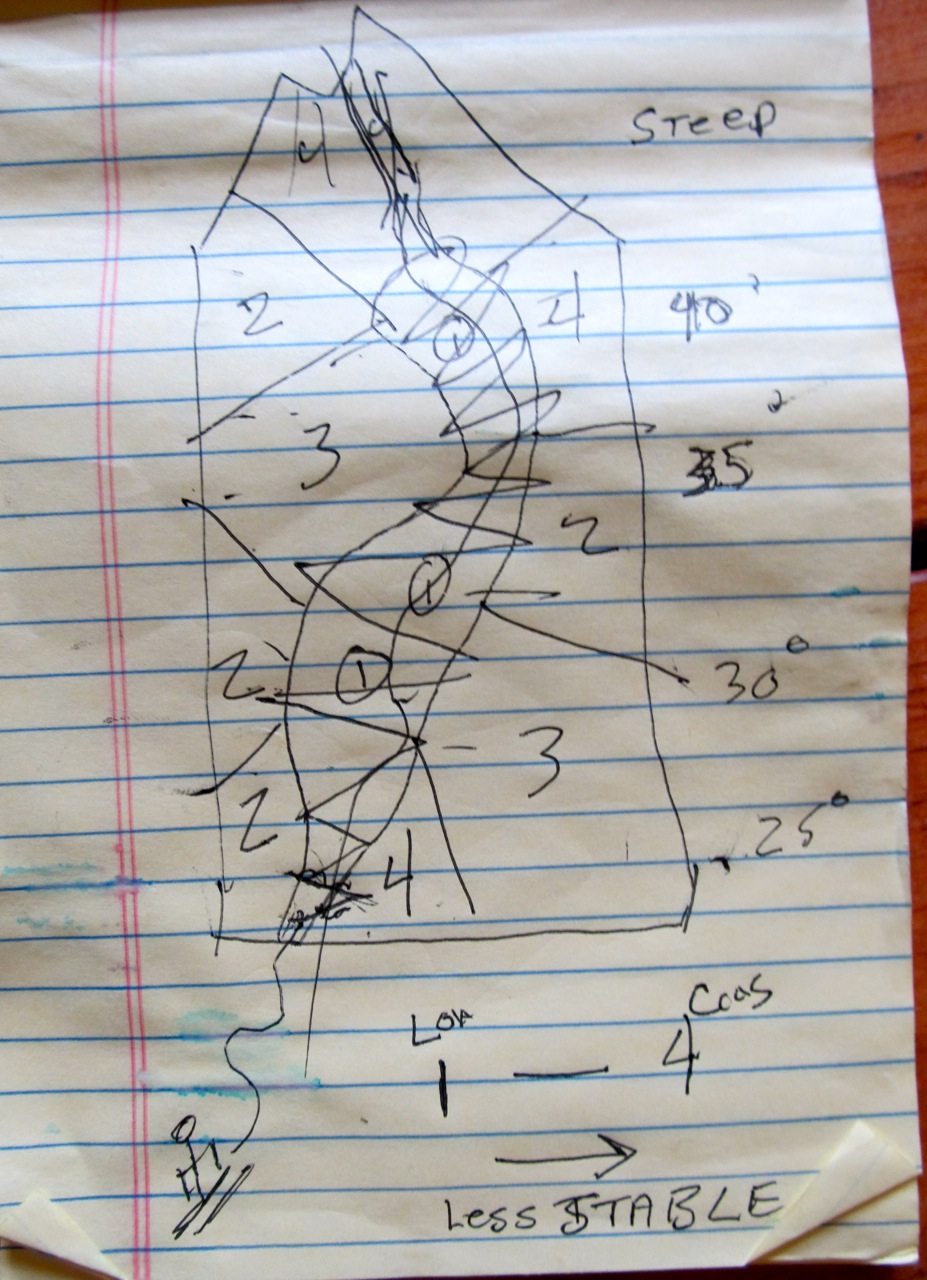 STeeP
4
4
2
4
40°
1
3
35°
2
1
2
1
30°
3
2
25°
4
Low
1 — 4
Less STABLE